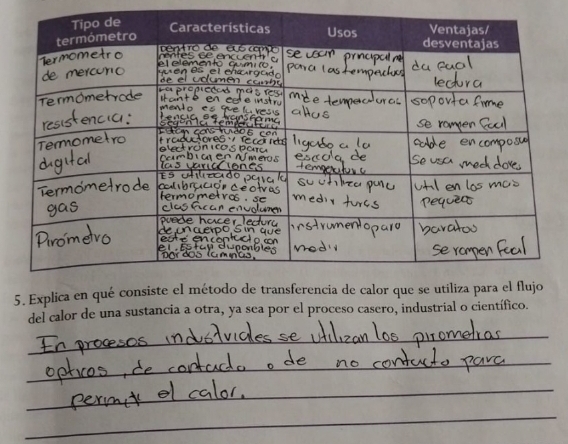 Tipo de termómetro
Características
Usos
Ventajas/ desventajas
Termometro
de mercurio
Dentro de sus compo
nentes se encuentra
el elemento químico,
quien es el encargado
de el volumen
se usan principalme
para las
da facil
lectura
Termómetrode
resistencia:
La propiedad mas resa
ltante en este instru
mento es que la resis
tencia se transforma
según la temperatura
mide temperaturas
altas
soporta firme
se rompen facil
Termometro
digital
Estan construidos con
traductores y
electrónicos para
cambiar en números
las variaciones
ligado a la
escala de
temperatura
en
Se usa medidores
Termómetro de
gas
Es utilizado para la
calibración de otros
termometros. se
clasifican
su utiliza para
medir
util en los mas
pequeños
Pirómetro
puede hacer lectura
de un cuerpo sin que
este en contacto con
el. Estan disponibles
por dos laminas.
instrumento para
medir
baratos
se rompen facil
5. Explica en qué consiste el método de transferencia de calor que se utiliza para el flujo
del calor de una sustancia a otra, ya sea por el proceso casero, industrial o científico.
En procesos industriales se utilizan los pirometros
opticos, de contacto o de no contacto para
permitir el calor.